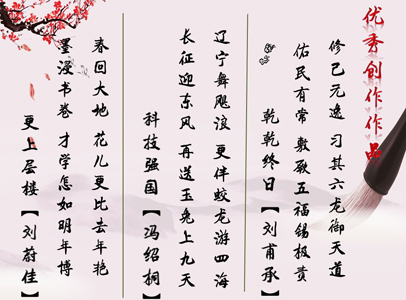 优秀创作作品
修己无逸 习其六龙御天道
佑民有常 敷敛五福锡极贵
乾乾终日【刘甫承】
辽宁舞飓浪 更伴蛟龙游四海
长征迎东风 再送玉兔上九天
科技强国【冯绍桐】
春回大地 花儿更比去年艳
墨浸书卷 才学怎如明年博
更上层楼【刘蔚佳】